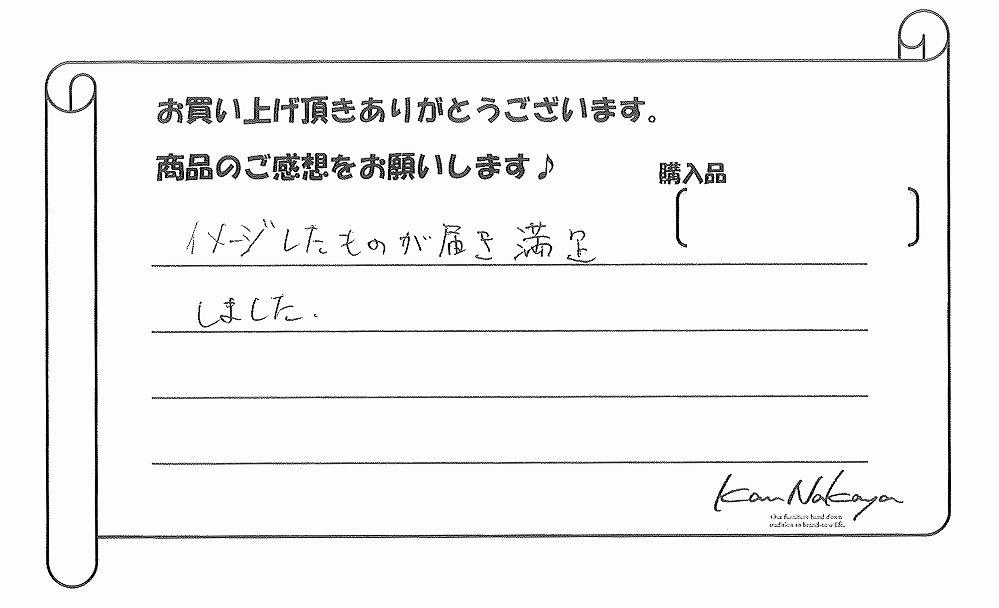 お買い上げ頂きありがとうございます。
商品のご感想をお願いします♪
購入品
イメージしたものが届き満足
しました.
Kan Nakaya
Our furniture hand down
tradition to brand-new life.